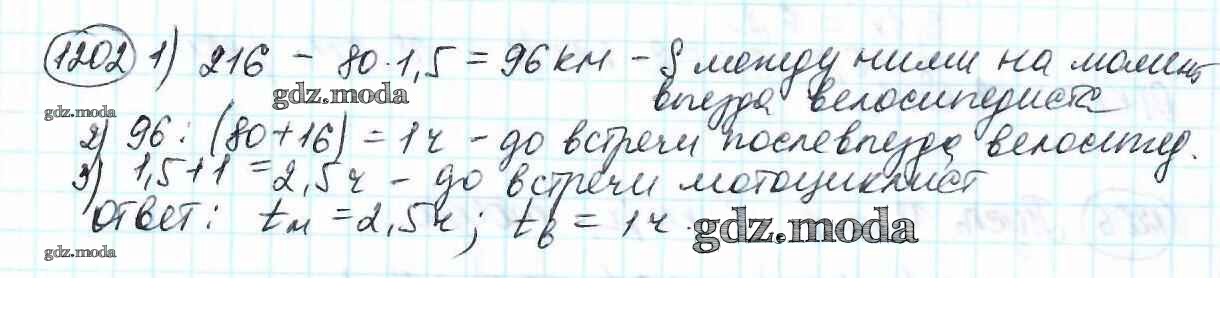 1202 1) 216 - 80·1,5 = 96 км - S между ними на момент
выезда велосипедиста
gdz.moda
gdz.moda
2) 96 : (80+16) = 1ч - до встречи после выезда велосипед.
3) 1,5+1 = 2,5ч - до встречи мотоциклист
ответ: tм = 2,5ч; tв = 1ч.
gdz.moda
gdz.moda